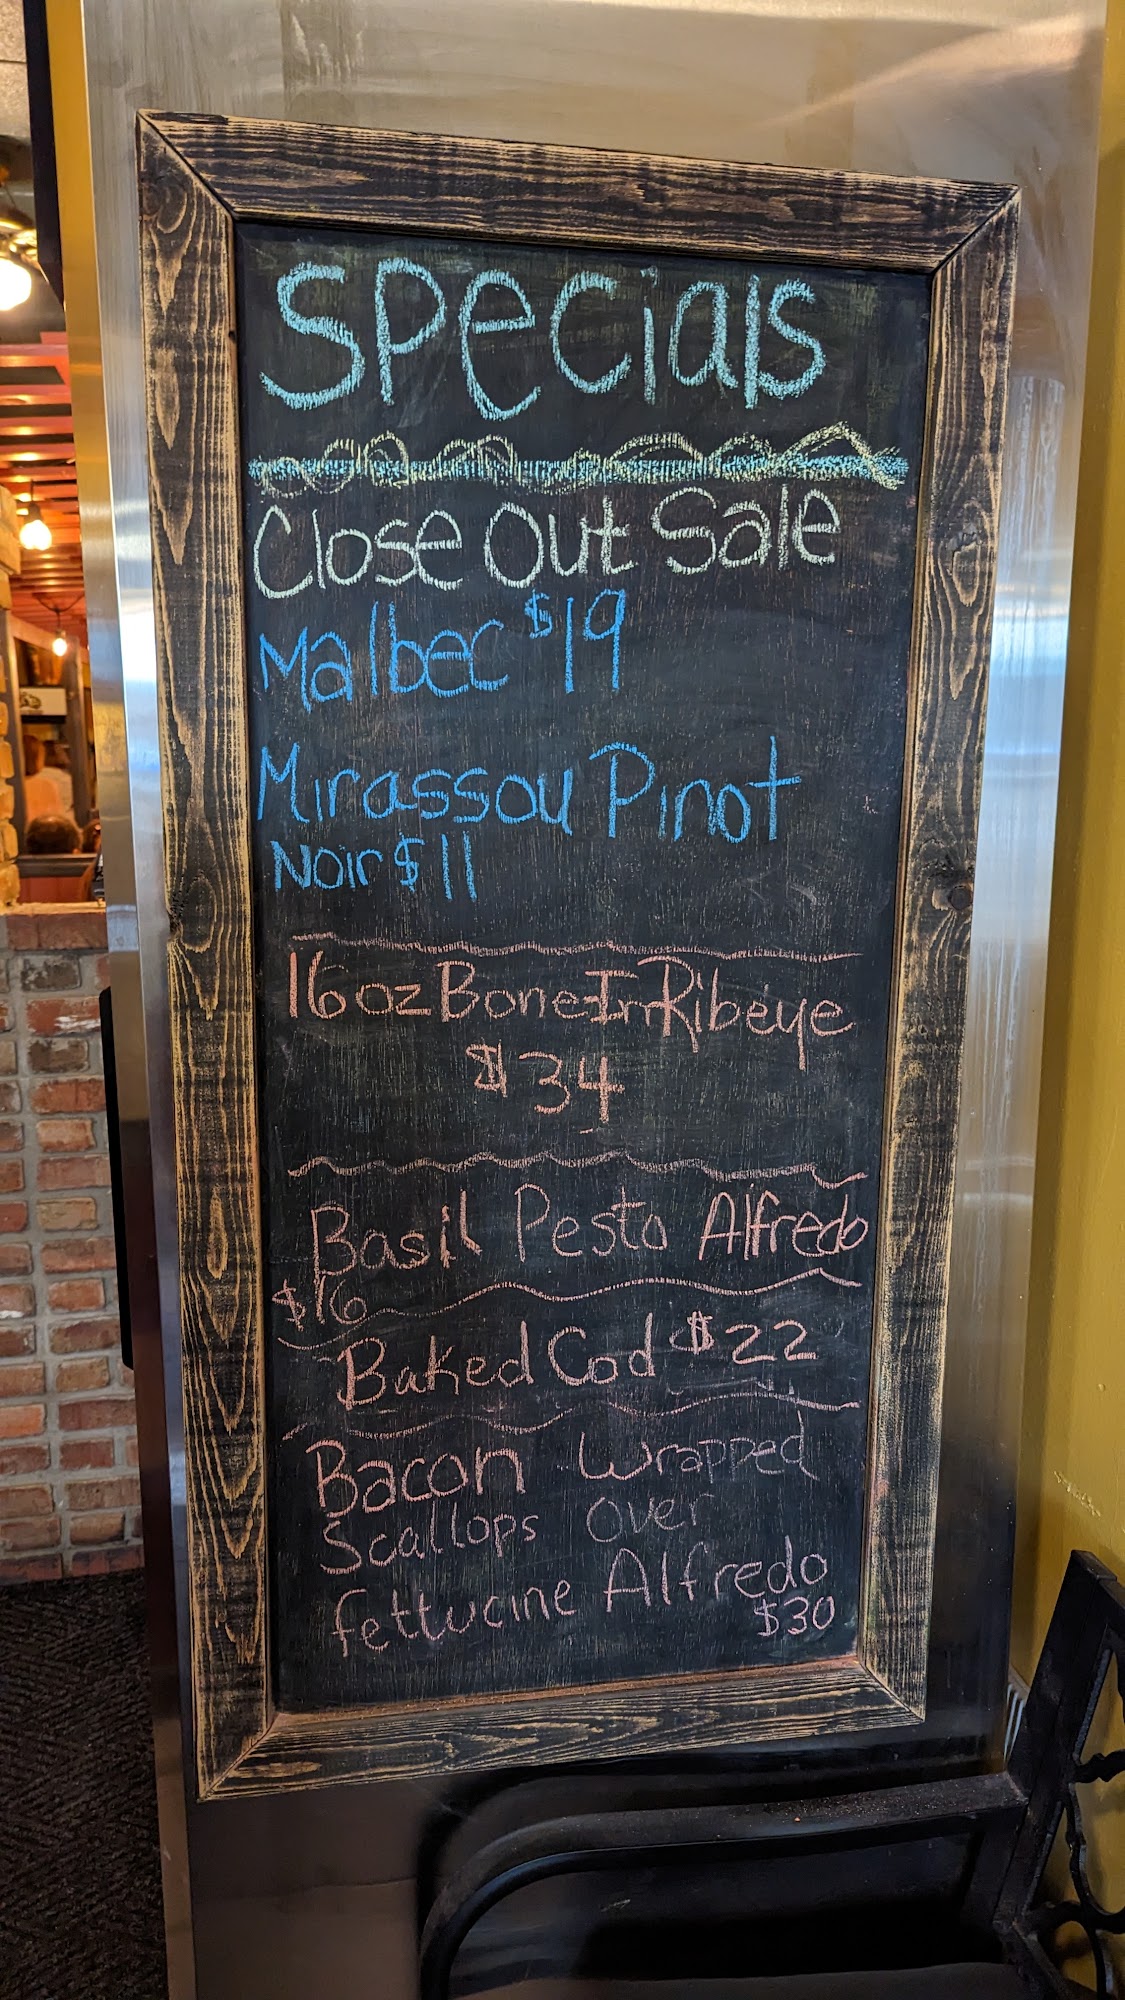 Specials
Close Out Sale
Malbec $19
Mirassou Pinot
Noir $11
16oz Bone-In Ribeye
$34
Basil Pesto Alfredo
$16
Baked Cod $22
Bacon Wrapped
Scallops over
fettucine Alfredo
$30